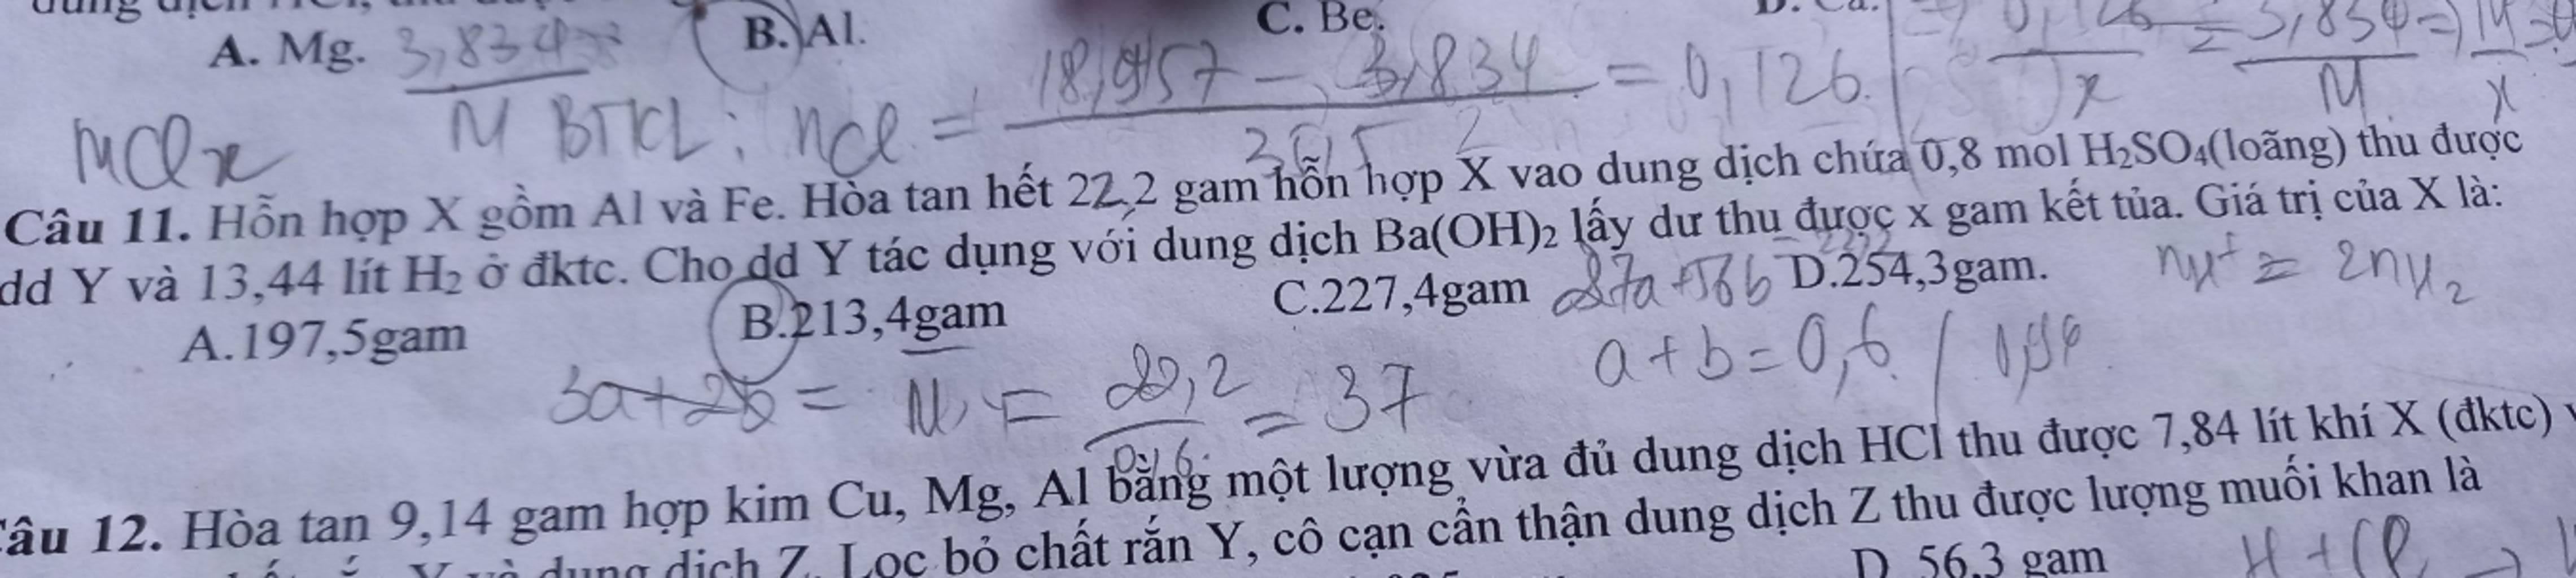 A. Mg. B. Al. C. Be.
3,834
M
MClx
BTKL: nCl = 18,957 - 3,834 = 0,126
Câu 11. Hỗn hợp X gồm Al và Fe. Hòa tan hết 22,2 gam hỗn hợp X vào dung dịch chứa 0,8 mol H₂SO₄(loãng) thu được
dd Y và 13,44 lít H₂ ở đktc. Cho dd Y tác dụng với dung dịch Ba(OH)₂ lấy dư thu được x gam kết tủa. Giá trị của X là:
A.197,5gam B.213,4gam C.227,4gam D.254,3gam.
27a+56b
nH⁺ = 2nH₂
a + b = 0,6
3a+2b = M = 22,2 / 0,6 = 37
Câu 12. Hòa tan 9,14 gam hợp kim Cu, Mg, Al bằng một lượng vừa đủ dung dịch HCl thu được 7,84 lít khí X (đktc)
dung dịch Z. Lọc bỏ chất rắn Y, cô cạn cẩn thận dung dịch Z thu được lượng muối khan là
D. 56,3 gam